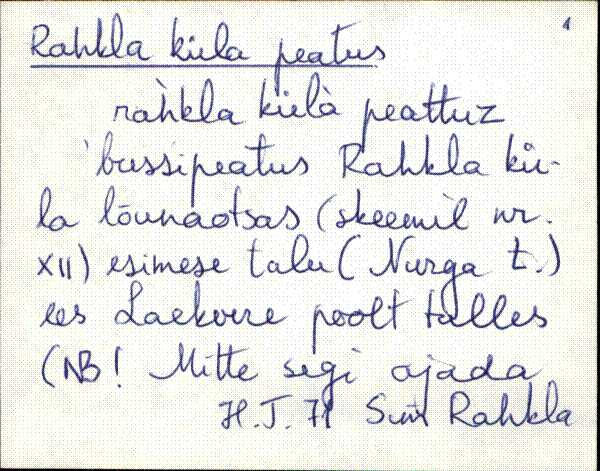 4
Rahkla küla peatus
rah̀kla külà peattuz
'bussipeatus Rahkla kü-
la lõunaotsas (skeemil nr.
XII) esimese talu (Nurga t.)
ees Laekvere poolt tulles
(NB! Mitte segi ajada
H.J. 71 Rahkla